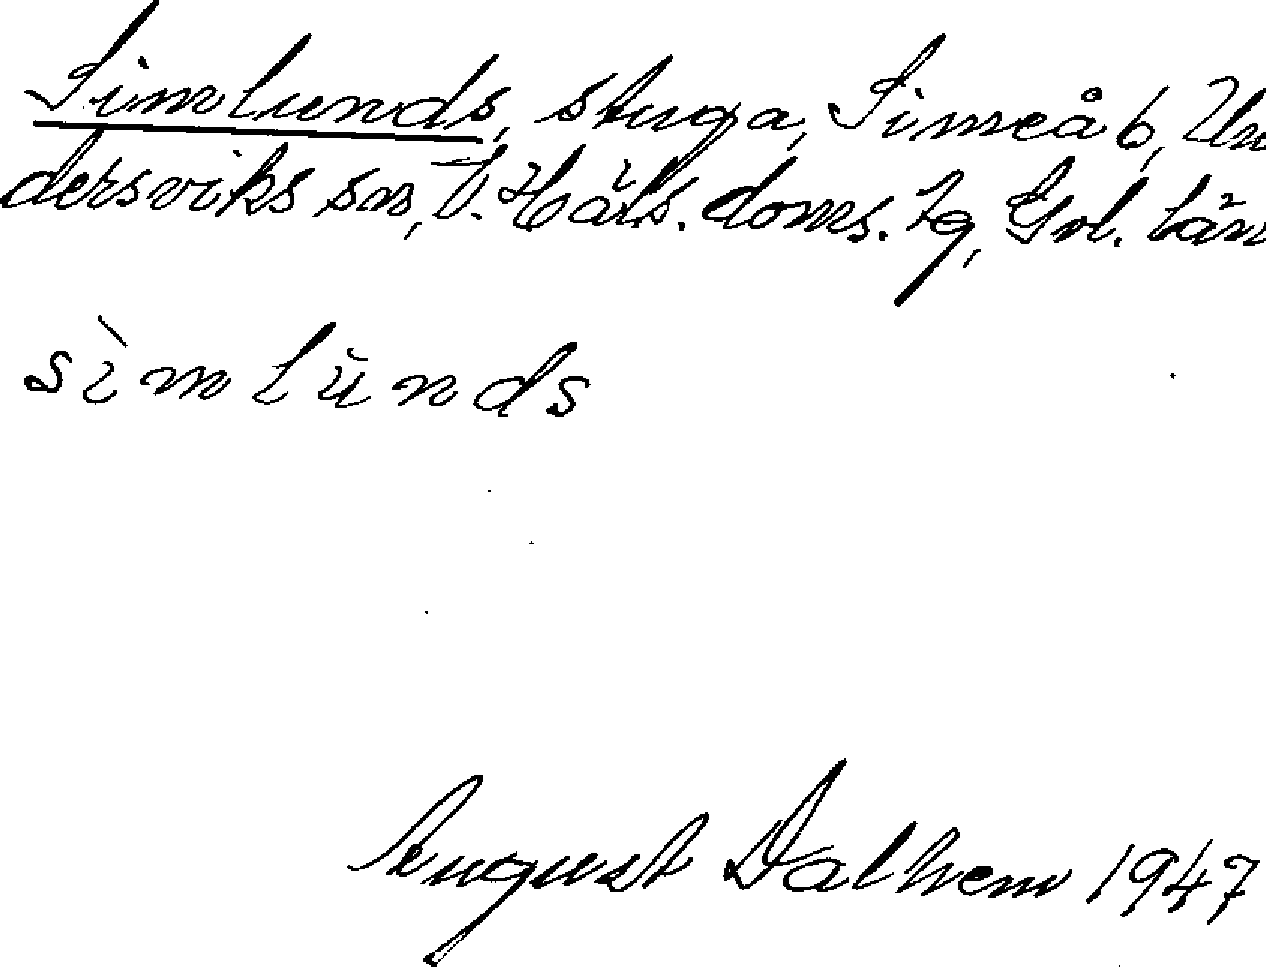 Simlunds, stuga, Simeå 6, Un
dersviks sn, V. Häls. doms. lg, Gvl. län
sìmlŭnds
August Dalhem 1947